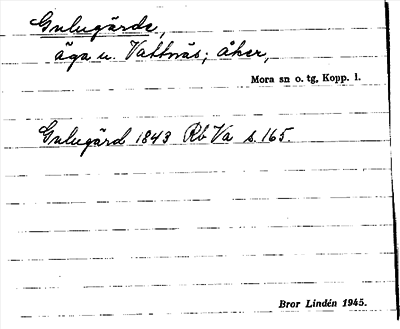 Gulugärde,
äga u. Vattnäs; åker,
Mora sn o. tg, Kopp. l.
Gulugärd 1843 Rb Va s. 165.
Bror Lindén 1945.